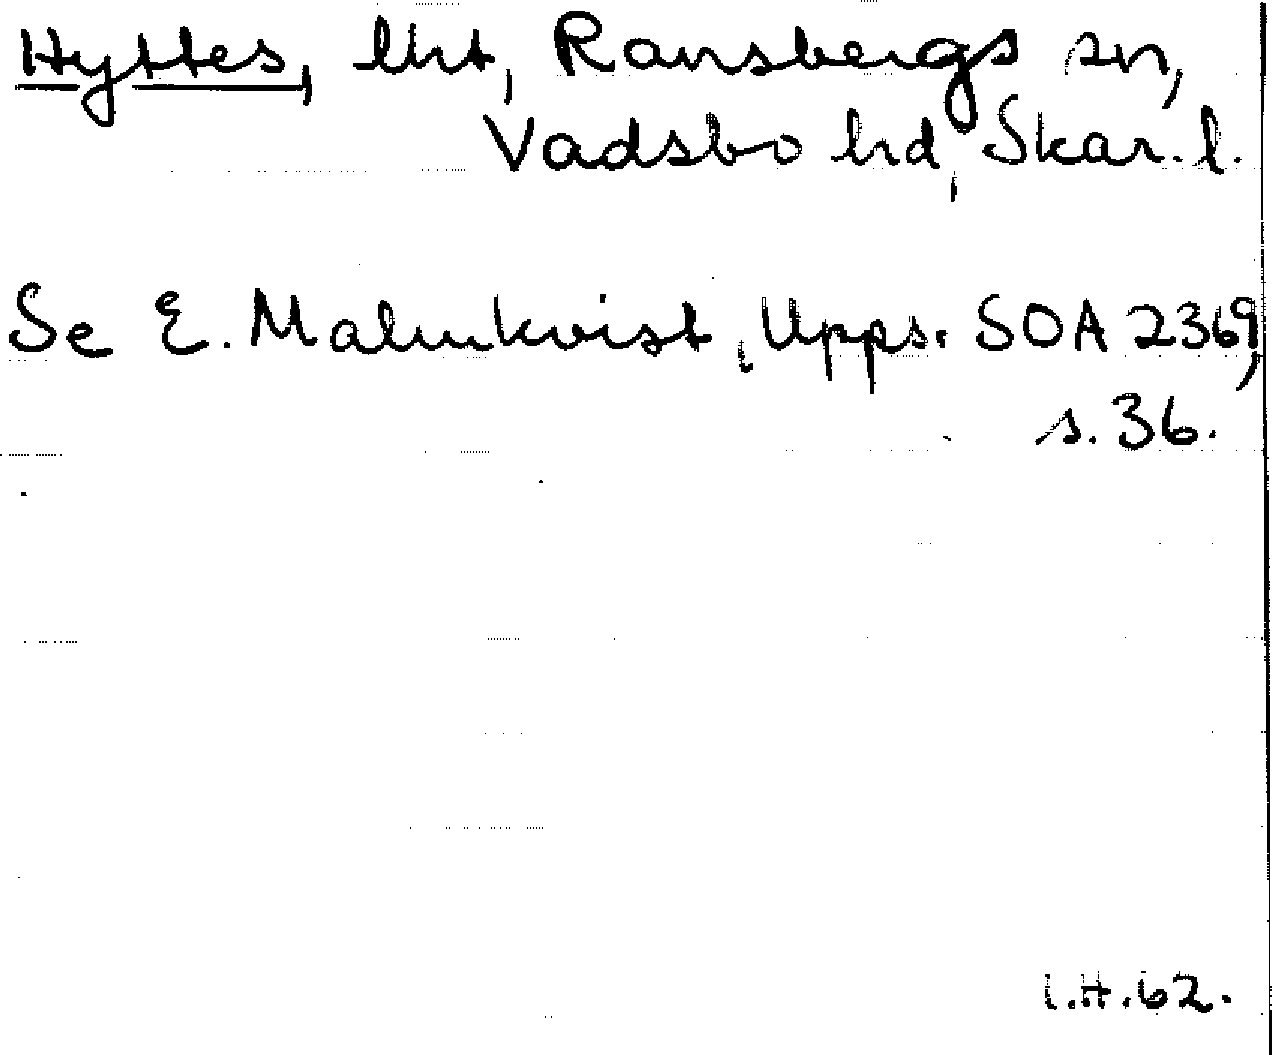 Hyttes, lht, Ransbergs sn,
Vadsbo hd, Skar. l.
Se E. Malmkvist, Upps. SOA 2369,
s. 36.
I.H. 62.